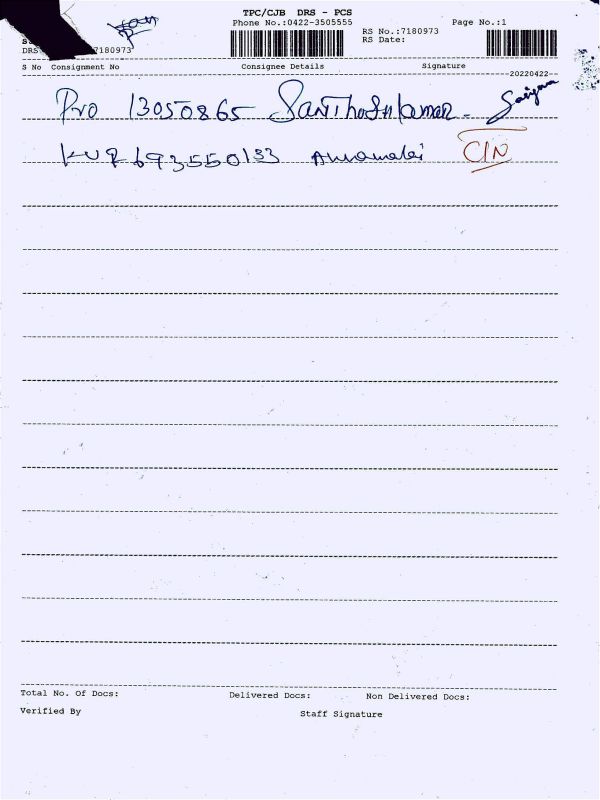 TPC/CJB DRS - PCS
Phone No.:0422-3505555 Page No.:1
RS No.:7180973
RS Date:
DRS 7180973
S No Consignment No Consignee Details Signature
20220422
Pro 13050865 Santhoshkumar
693550133 Annamalai CIN
Total No. Of Docs: Delivered Docs: Non Delivered Docs:
Verified By Staff Signature